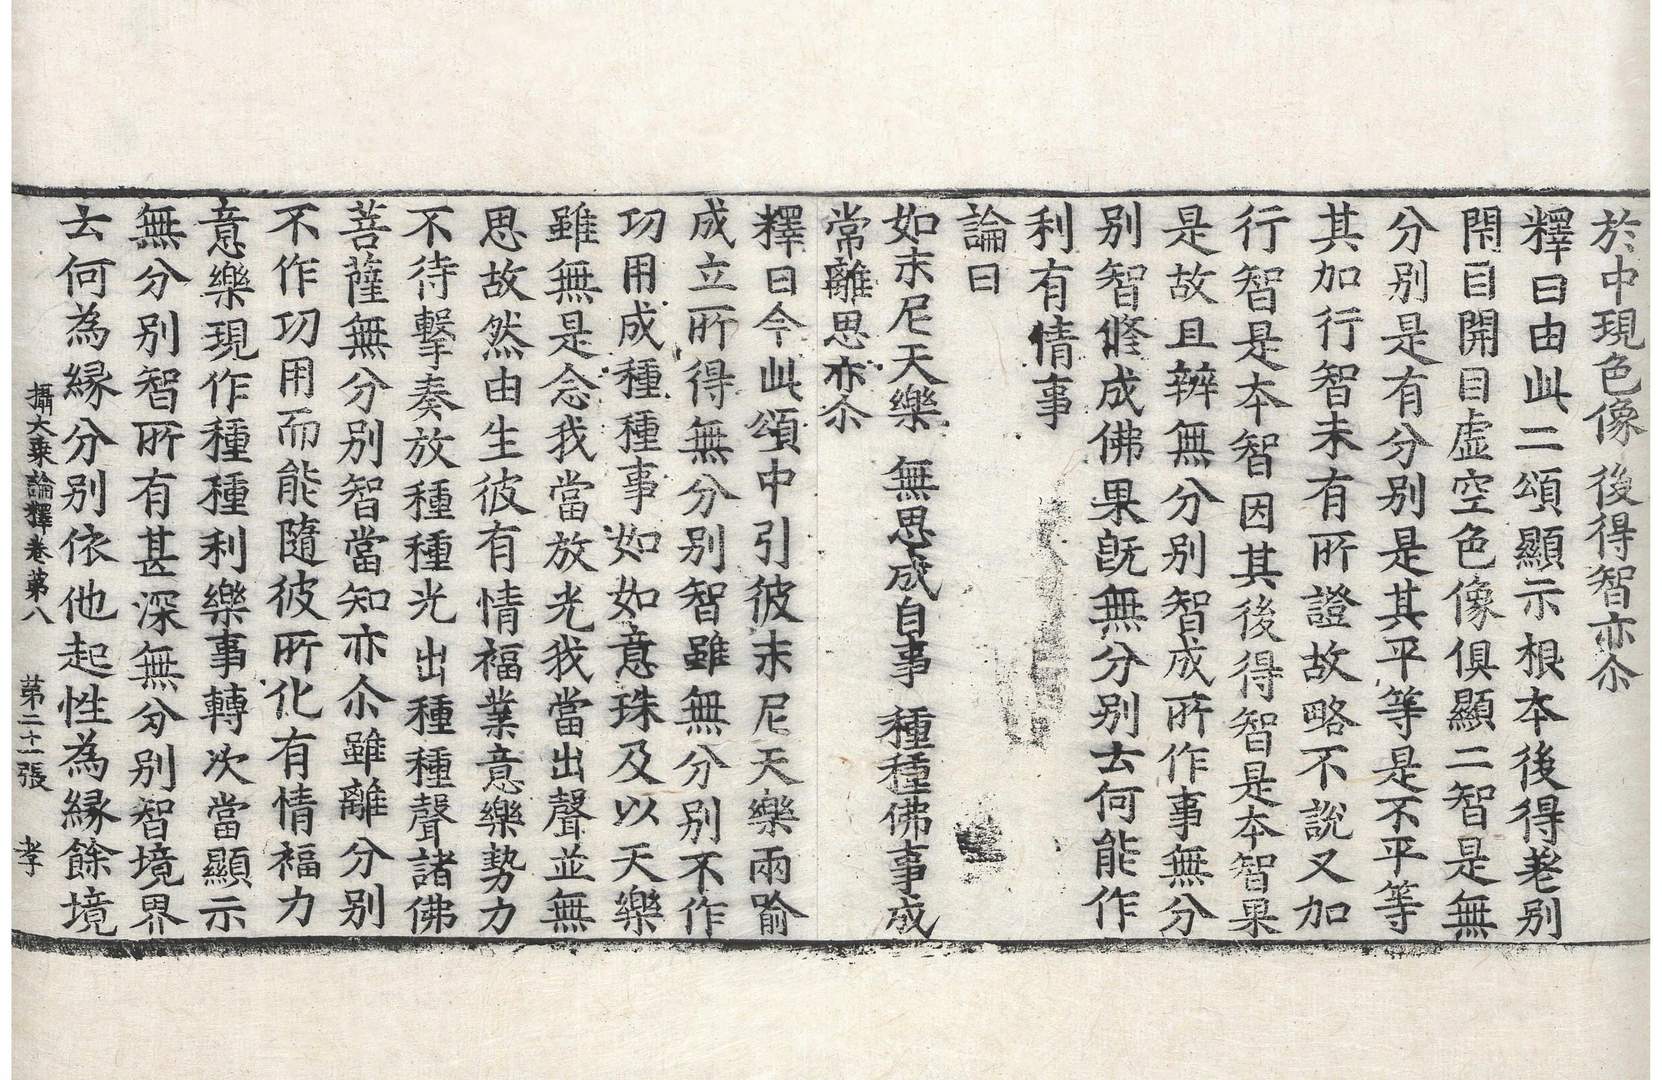 於中現色像 後得智亦尒
釋曰由此二頌顯示根本後得差别
閇目開目虛空色像俱顯二智是無
分别是有分别是其平等是不平等
其加行智未有所證故略不說又加
行智是本智因其後得智是本智果
是故且辨無分别智成所作事無分
别智修成佛果旣無分别云何能作
利有情事
論曰
如末尼天樂 無思成自事 種種佛事成
常離思亦尒
釋曰今此頌中引彼末尼天樂兩喻
成立所得無分别智雖無分别不作
功用成種種事如如意珠及以天樂
雖無是念我當放光我當出聲並無
思故然由生彼有情福業意樂勢力
不待擊奏放種種光出種種聲諸佛
菩薩無分别智當知亦尒雖離分别
不作功用而能隨彼所化有情福力
意樂現作種種利樂事轉次當顯示
無分别智所有甚深無分别智境界
云何為緣分别依他起性為緣餘境
攝大乘論釋卷第八 第二十一張 孝